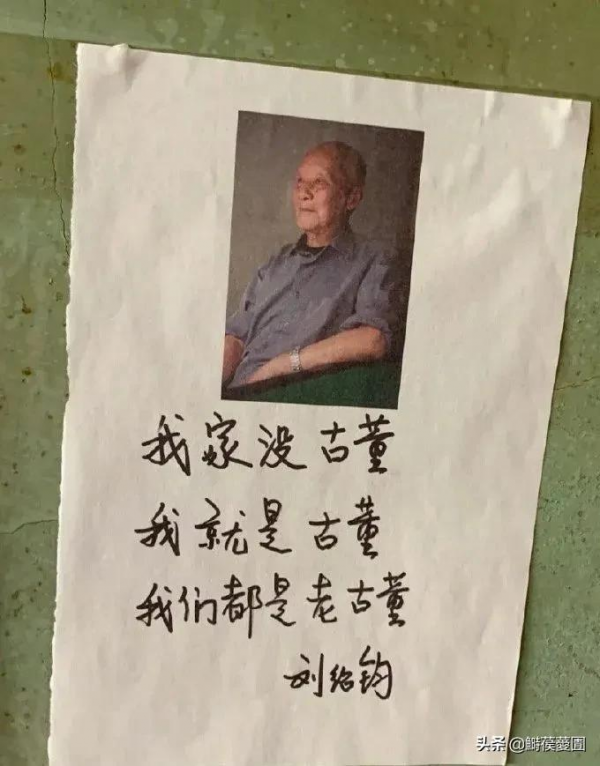 我家没古董
我就是古董
我们都是老古董
刘绍钧
头条 @鰣葔薆圕